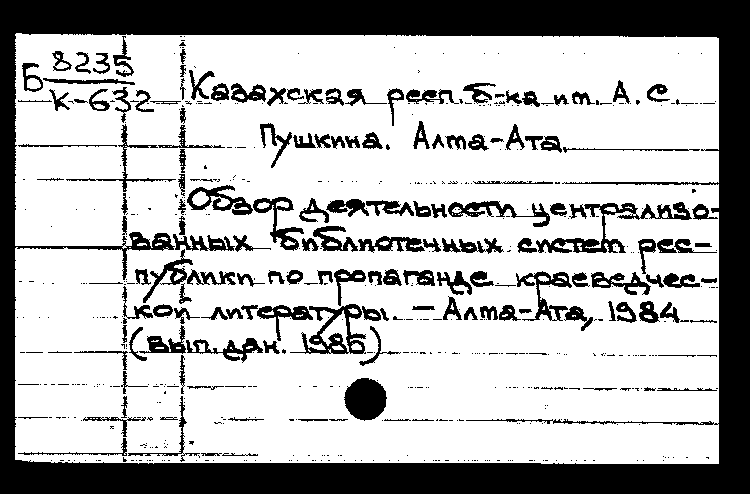 Б 8235
К-632
Казахская респ. б-ка им. А. С.
Пушкина. Алма-Ата.
Обзор деятельности централизо-
ванных библиотечных систем рес-
публики по пропаганде краеведчес-
кой литературы. — Алма-Ата, 1984
(вып. дан. 1985)